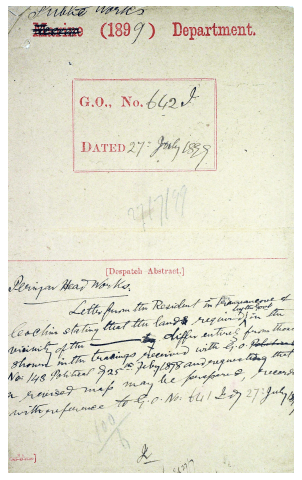 Public Works
Marine (1899) Department.
G.O., No. 642 I.
DATED 27th July 1899
27/7/99
[Despatch Abstract.]
Periyar Head Works.
Letter from the Resident in Travancore &
Cochin stating that the lands required by the Govt in the
vicinity of the differ entirely from those
shown in the tracings received with G.O.
No. 148 Political d/ 25th Feby 1878 and requesting that
a revised map may be prepared, recorded
with reference to G.O. No. 641 I d/ 27th July 1899